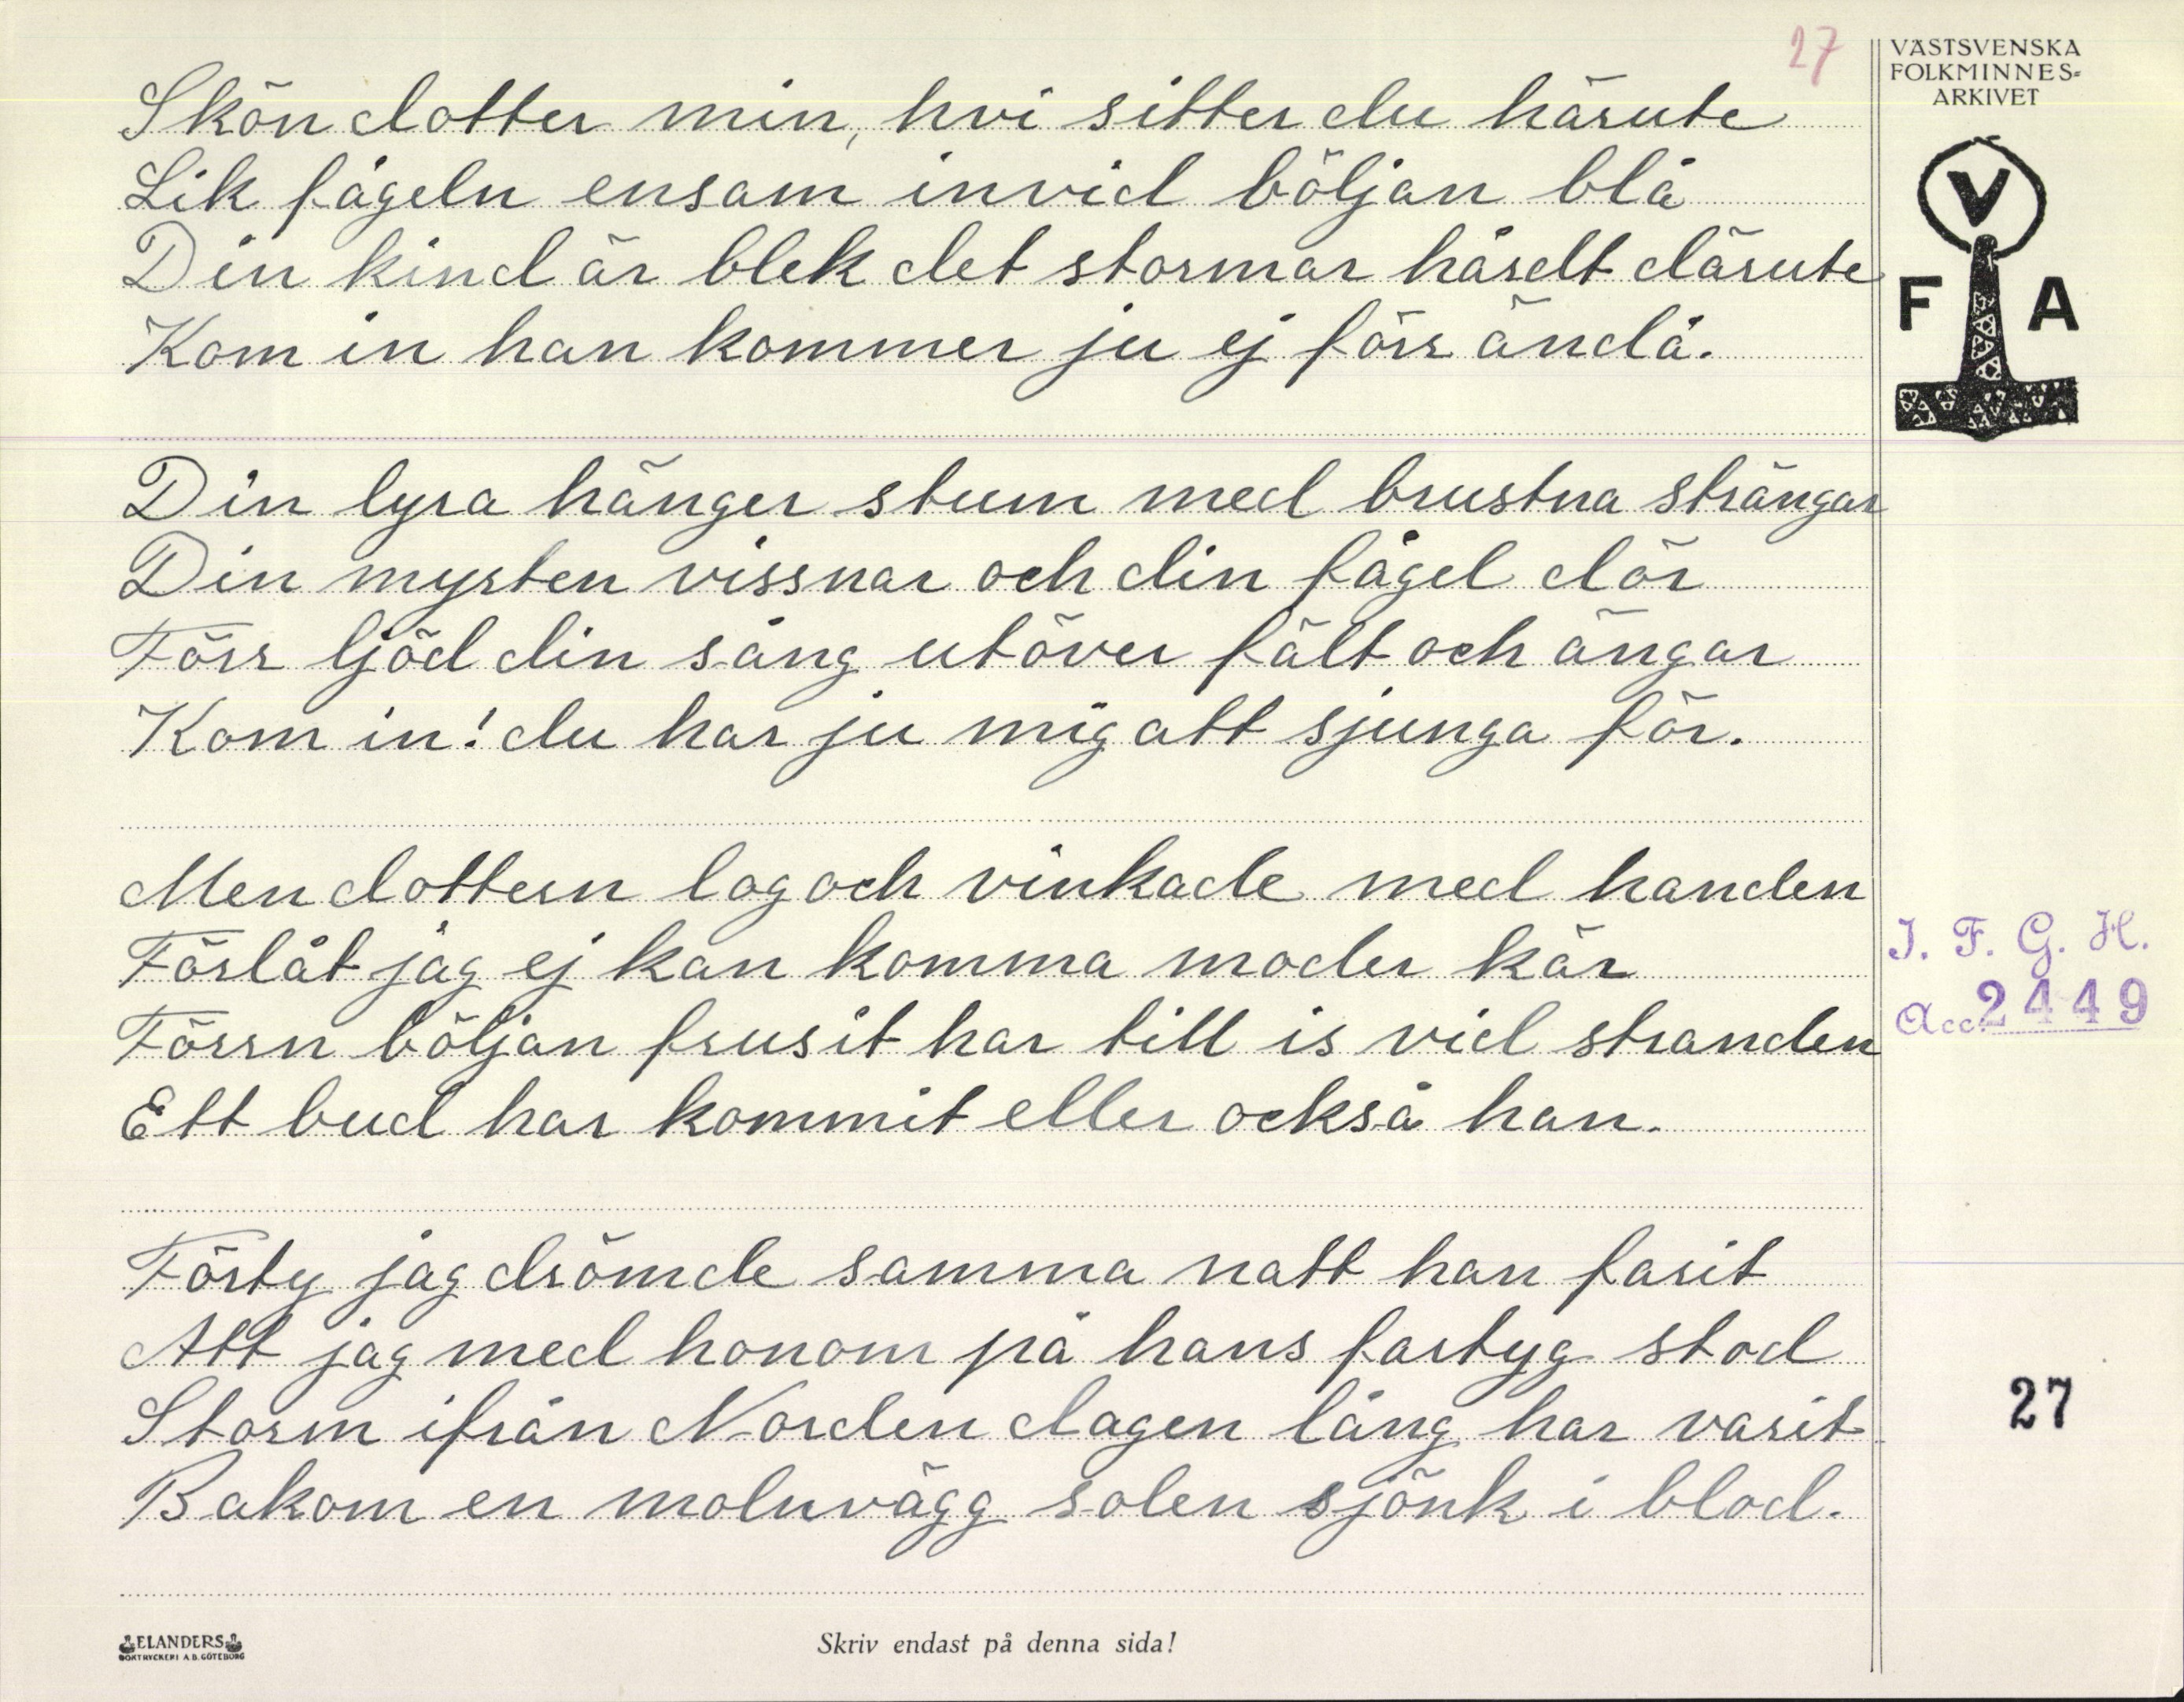 27
Skön dotter min, hvi sitter du härute
Lik fågeln ensam invid böljan blå
Din kind är blek det stormar hårdt därute
Kom in han kommer ju ej förr ändå.
Din lyra hänger stum med brustna strängar
Din myrten vissnar och din fågel dör
Förr ljöd din sång utöver fält och ängar
Kom in! du har ju mig att sjunga för.
Men dottern log och vinkade med handen
Förlåt jag ej kan komma moder kär
Förrn böljan frusit har till is vid stranden
Ett bud har kommit eller också han.
Förty jag drömde samma natt han farit
Att jag med honom på hans fartyg stod
Storm ifrån Norden dagen lång har varit
Bakom en molnvägg solen sjönk i blod.
ELANDERS
BOKTRYCKERI A.B. GÖTEBORG
Skriv endast på denna sida!
VÄSTSVENSKA
FOLKMINNES=
ARKIVET
V
F A
I. F. G. H.
Acc. 2449
27